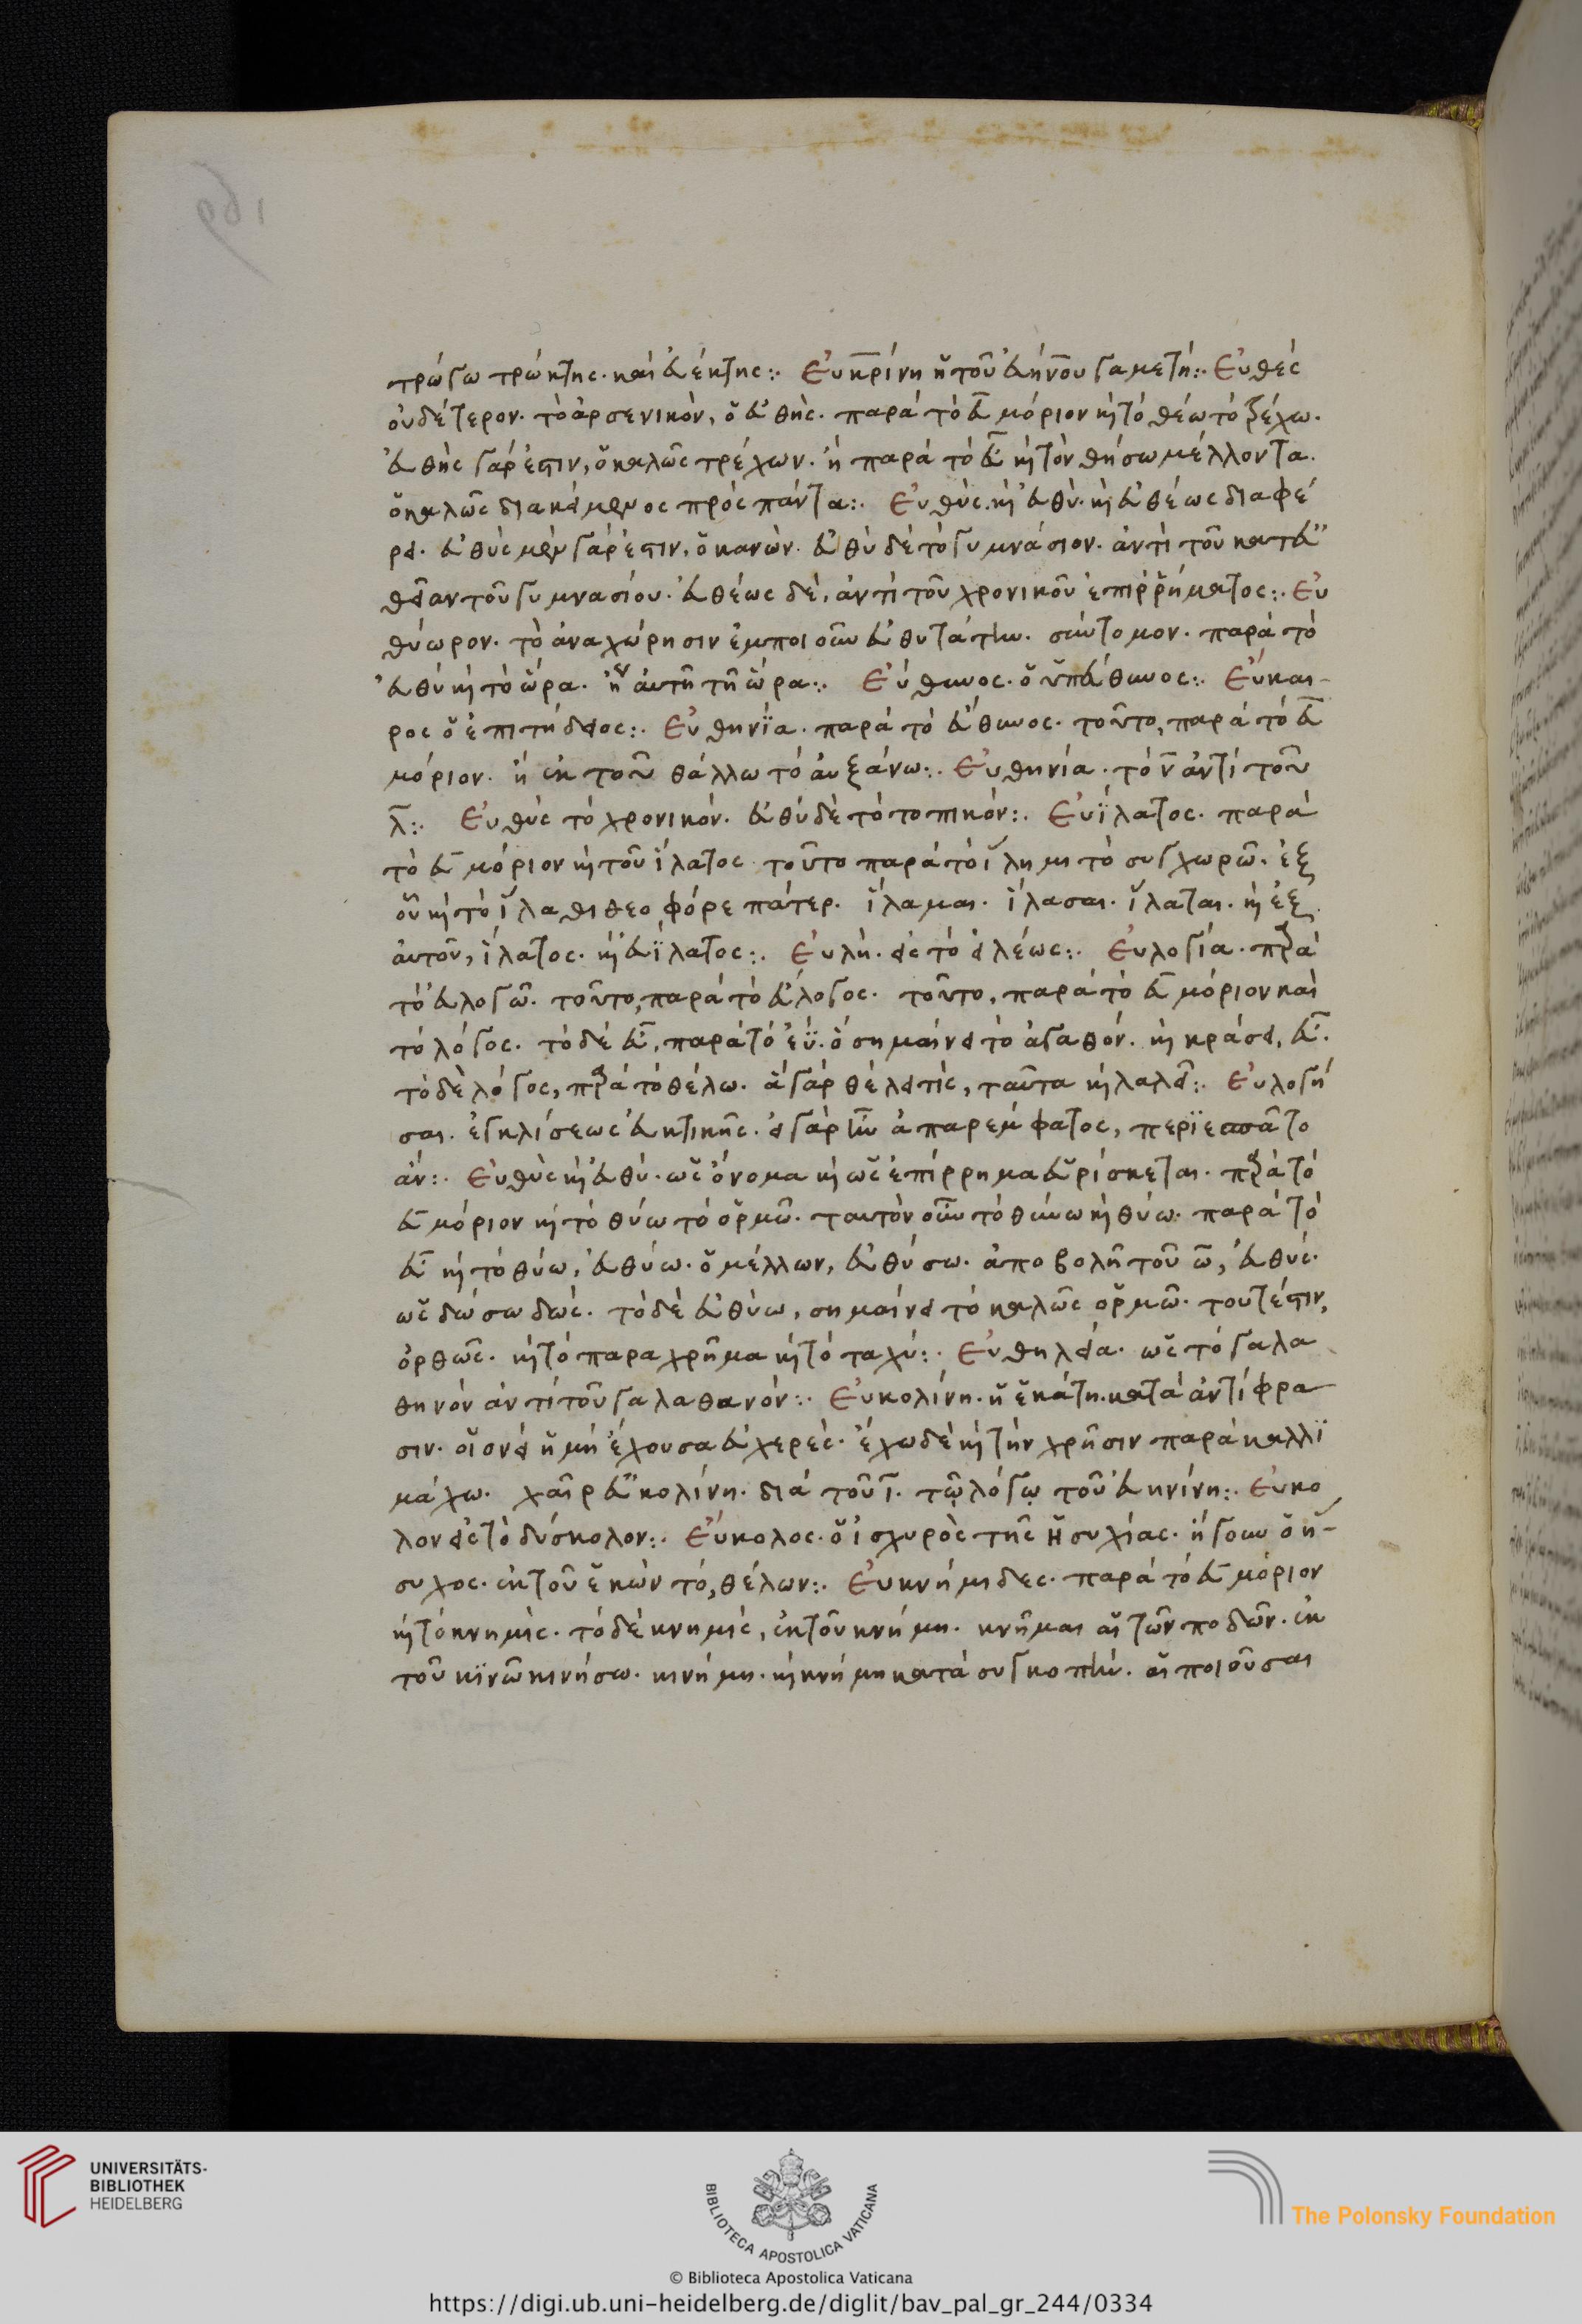 τρώγω τρώκτης. καὶ εὐέκτης:. Εὐκρίνη ἡ τοῦ εὐήνου γαμετή:. Εὐθές
οὐδέτερον. τὸ ἀρσενικὸν, ὁ εὐθής. παρά τὸ εὖ μόριον καὶ τὸ θέω τὸ τρέχω.
εὐθὴς γάρ ἐστιν, ὁ καλῶς τρέχων. ἢ παρά τὸ εὖ καὶ τὸν θήσω μέλλοντα.
ὁ καλῶς διακείμενος πρὸς πάντα:. Εὐθὺς. καὶ εὐθὺ. καὶ εὐθέως διαφέ
ρει. εὐθὺς μὲν γάρ ἐστιν, ὁ κανών. εὐθὺ δὲ τὸ γυμνάσιον. ἀντὶ τοῦ κατευ
θεῖαν τοῦ γυμνασίου. εὐθέως δὲ, ἀντὶ τοῦ χρονικοῦ ἐπιρρήματος:. Εὐ
θύωρον. τὸ ἀναχώρησιν ἐμποιοῦν εὐθυτάτην. σύντομον. παρά τὸ
εὐθύ καὶ τὸ ὥρα. ἐν αὐτῇ τῇ ὥρα:. Εὔθηνος. ὁ εὔθηνος:. Εὔκαι-
ρος ὁ ἐπιτήδειος:. Εὐθηνία. παρά τὸ εὔθηνος. τοῦτο, παρά τὸ εὖ
μόριον. ἢ ἐκ τοῦ θάλλω τὸ αὐξάνω:. Εὐθηνία. τὸ ν ἀντί τοῦ
λ:. Εὐθὺς τὸ χρονικόν. εὐθύ δὲ τὸ τοπικόν:. Εὐΐλατος. παρά
τὸ εὖ μόριον καὶ τοῦ ἵλατος τοῦτο παρά τὸ ἵλημι τὸ συγχωρῶ. ἐξ
οὗ καὶ τὸ ἵλαθι θεοφόρε πάτερ. ἵλαμαι. ἵλασαι. ἵλαται. καὶ ἐξ
αὐτοῦ, ἵλατος. καὶ εὐΐλατος:. Εὐλὴ. εἰς τὸ εἰλέως:. Εὐλογία. παρὰ
τὸ εὐλογῶ. τοῦτο, παρά τὸ εὔλογος. τοῦτο, παρά τὸ εὖ μόριον καὶ
τὸ λόγος. τὸ δὲ εὖ, παρά τὸ ἐΰ. ὃ σημαίνει τὸ ἀγαθόν. καὶ κράσει, εὖ.
τὸ δὲ λόγος, παρὰ τὸ θέλω. ἃ γάρ θέλει τὶς, ταῦτα καὶ λαλεῖ:. Εὐλογῆ
σαι. ἐγκλίσεως εὐκτικῆς. εἰ γάρ ἦν ἀπαρέμφατος, περιεσπᾶτο
ἄν:. Εὐθὺς καὶ εὐθύ. ὡς ὄνομα καὶ ὡς ἐπίρρημα εὑρίσκεται. παρὰ τὸ
εὖ μόριον καὶ τὸ θύω τὸ ὁρμῶ. ταυτὸν οὖν τὸ θύνω καὶ θύω. παρά τὸ
εὖ καὶ τὸ θύω, εὐθύω. ὁ μέλλων, εὐθύσω. ἀποβολῇ τοῦ ω, εὐθύς.
ὡς δώσω δώς. τὸ δὲ εὐθύω, σημαίνει τὸ καλῶς ὁρμῶ. τουτέστιν,
ὀρθῶς. καὶ τὸ παραχρῆμα καὶ τὸ ταχύ:. Εὐθηλεία. ὡς τό γαλα
θηνόν ἀντί τοῦ γαλαθανόν:. Εὐκολίνη. ἡ ἑκάτη. κατά ἀντίφρα
σιν. οἷονεὶ ἡ μὴ ἔχουσα εὐχερές. ἔχω δὲ καὶ τὴν χρῆσιν παρά καλλι
μάχω. χαῖρ εὐκολίνη. διά τοῦ ι. τῷ λόγῳ τοῦ εὐκνίνη:. Εὔκο
λον εἰς τὸ δύσκολον:. Εὔκολος. ὁ ἰσχυρὸς τῆς ἡσυχίας. ἤγουν ὁ ἥ-
συχος. ἐκ τοῦ ἑκών τό, θέλων:. Εὐκνήμιδες. παρά τὸ εὖ μόριον
καὶ τὸ κνημίς. τὸ δὲ κνημίς, ἐκ τοῦ κνήμη. κνῆμαι αἱ τῶν ποδῶν. ἐκ
τοῦ κινῶ κινήσω. κινήμη. καὶ κνήμη κατά συγκοπήν. αἱ ποιοῦσαι
169
UNIVERSITÄTS-
BIBLIOTHEK
HEIDELBERG
BIBLIOTECA APOSTOLICA VATICANA
The Polonsky Foundation
© Biblioteca Apostolica Vaticana
https://digi.ub.uni-heidelberg.de/diglit/bav_pal_gr_244/0334